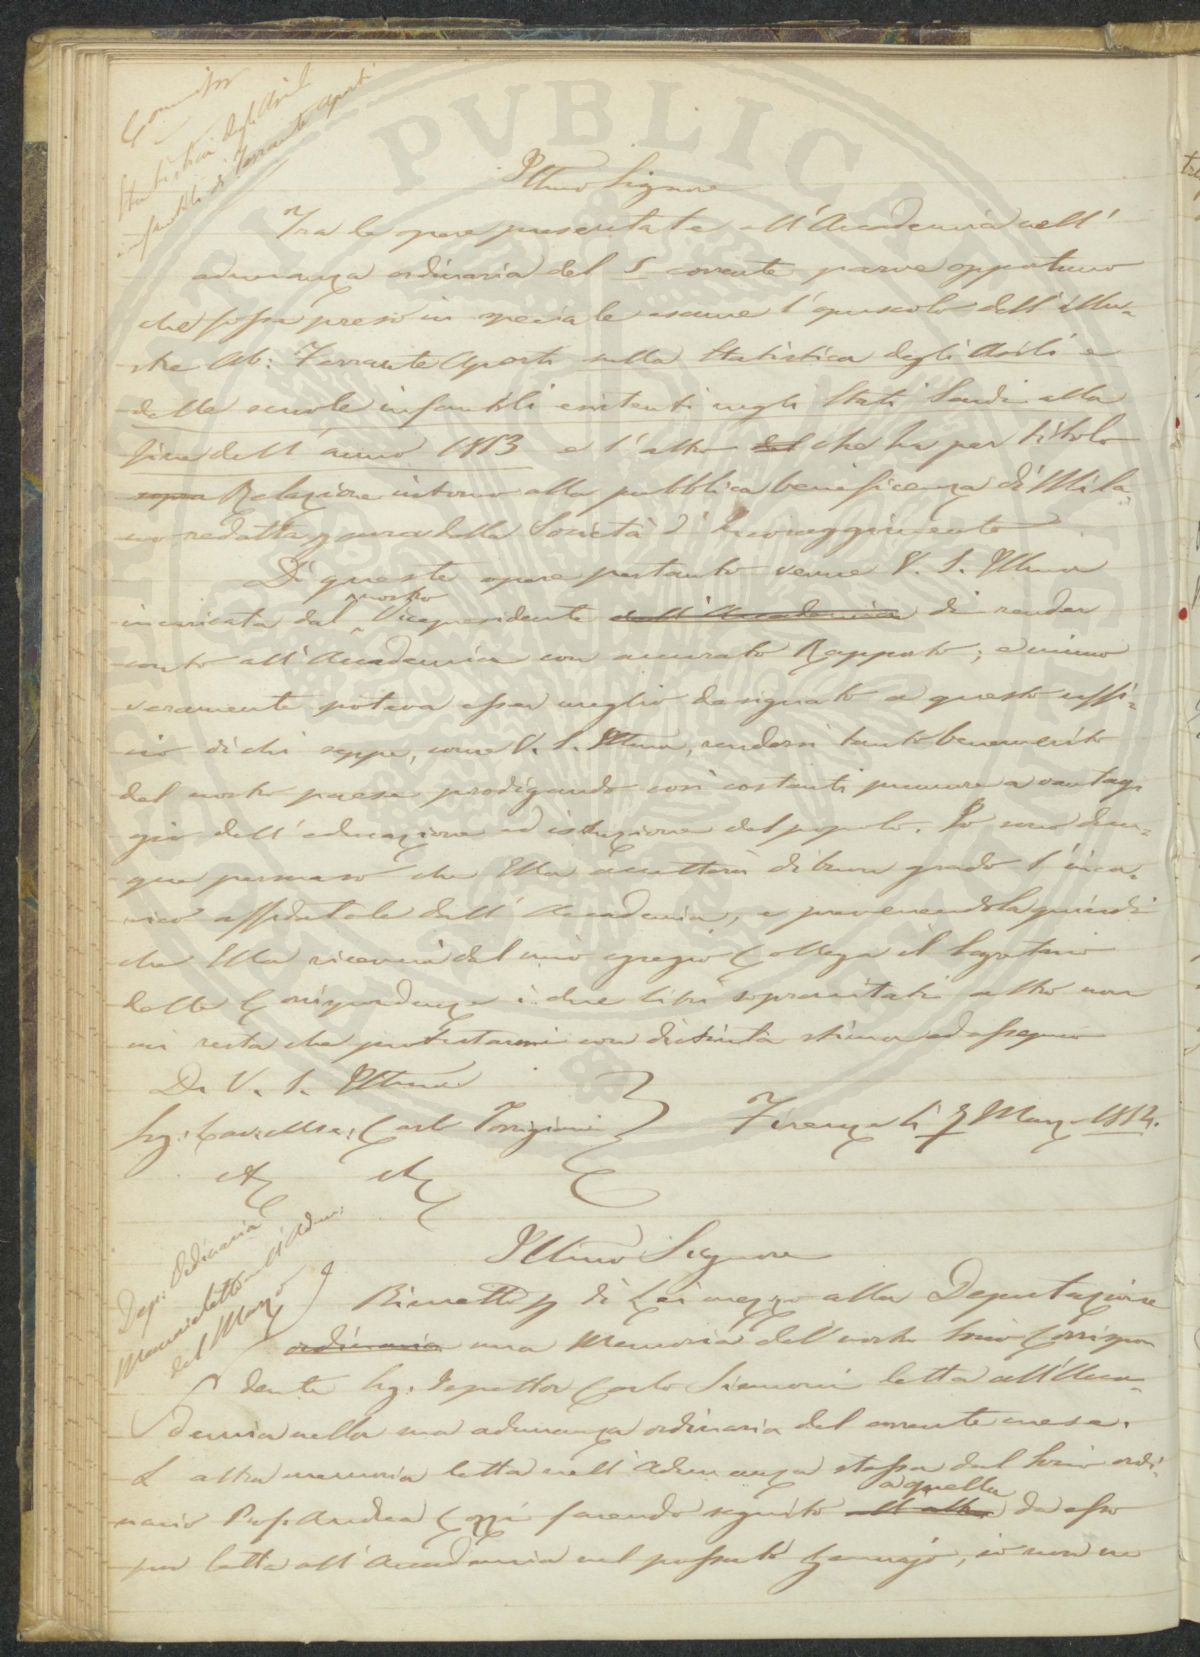 Statistica degli Asili
infantili di Ferrante Aporti
Illmo Signore
Tra le opere presentate all'Accademia nell'
adunanza ordinaria del 5 corrente parve opportuno
che fosse preso in speciale esame l'opuscolo dell'illu-
stre Ab: Ferrante Aporti sulla Statistica degli Asili e
delle scuole infantili esistenti negli Stati Sardi alla
fine dell'anno 1853 e l'altro del che ha per titolo
sopra Relazione intorno alla pubblica beneficenza di Mila-
no redatta per cura della Società d'Incoraggiamento
Di queste opere pertanto venne V. S. Illma
incaricata dal nostro Vicepresidente dell'Accademia di render
conto all'Accademia con accurato Rapporto; e niuno
veramente poteva esser meglio designato a questo uffi-
cio di chi seppe, come V. S. Illma, rendersi tanto benemerito
del nostro paese prodigando così costanti premure a vantag-
gio dell'educazione ed istruzione del popolo. Io sono dun-
que persuaso che Ella accetterà di buon grado l'inca-
rico affidatole dall'Accademia, e prevenendola quindi
che Ella riceverà dal mio egregio Collega il Segretario
delle Corrispondenze i due libri sopracitati altro non
mi resta che protestarmi con distinta stima ed ossequio
Di V. S. Illma
Sig: Cav: Mse: Carlo Torrigiani Firenze li 7 Marzo 1854.
Dep: Ordinaria
Memorie lette nell'Adun:
del Marzo
Illmo Signore
Rimetto per di Lei mezzo alla Deputazione
ordinaria una Memoria del nostro Socio Corrispon
dente Sig: Ispettor Carlo Siemoni letta all'Acca-
demia nella sua adunanza ordinaria del corrente mese.
L'altra memoria letta nell'Adunanza stessa dal Socio ordi-
nario Prof. Andrea Cozzi facendo seguito all'altra a quella da esso
pur letta all'Accademia nel passato Gennajo, io non ne